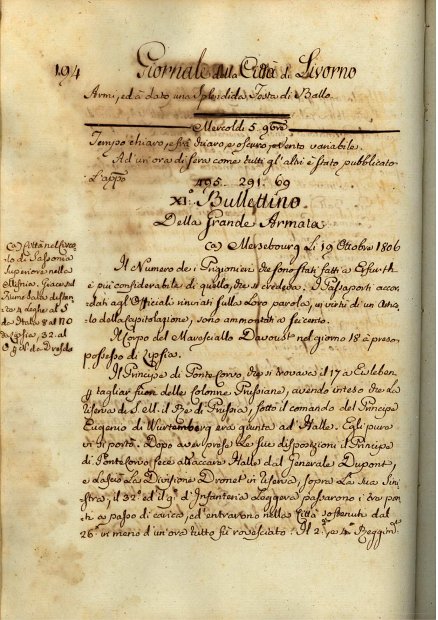 194
Giornale della Città di Livorno
Armi, ed à dato una Splendida Festa di Ballo.
Mercoldi 5. 9bre
Tempo chiaro, e frà chiaro, e oscuro, e vento variabile.
Ad un'ora di sera come tutti gl'altri è stato pubblicato
L'appo
495. 291. 69
XI.º Bullettino
Della Grande Armata
(a) Mersebourg Li 19 Ottobre 1806
(a) Città nel Circo-
lo di Sassonia
Superiore nella
Misnia. Giace sul
Fiume Sala distan-
te 4 leghe al S
da Halla 8 al NO
da Lipsia, 32. al
O q N da Dresda
Il Numero de' Prigionieri che sono stati fatti a Erfurth
è più considerabile di quello, che si credeva. I Passaporti accor-
dati agl'Officiali rinviati sulla Loro parola, in virtù di un Artico-
lo della Capitolazione, sono ammontati a seicento.
Il Corpo del Maresciallo Davoust nel giorno 18 à preso
possesso di Lipsia.
Il Principe di Ponte Corvo che si trovava il 17 a Eisleben
p tagliar fuori delle Colonne Prussiane, avendo inteso che La
Riserva di S.M. il Re di Prussia, sotto il comando del Principe
Eugenio di Wurtemberg era giunta ad Halle. Egli pure
vi si portò. Dopo aver prese Le sue disposizioni il Principe
di Ponte Corvo fece attaccare Halle dal Generale Dupont,
e lasciò La Divisione Dronet in riserva, sopra La sua Sini-
stra, il 32º ed il 9º di Infanteria Leggera passarono i tre pon-
ti a passo di carica, ed entrarono nella Città sostenuti dal
26º in meno d'un'ora tutto fù rovesciato. Il 2º, e 4º Reggimti